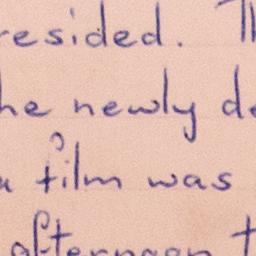 resided. Th
he newly de
a film was
afternoon t